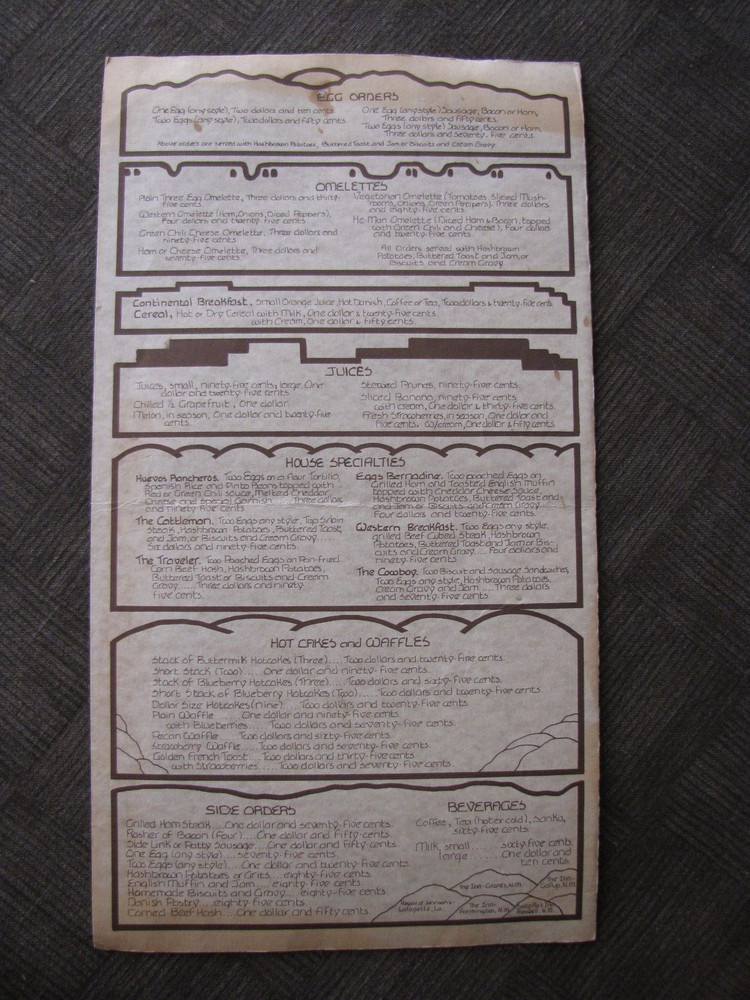 EGG ORDERS
One Egg (any style), Two dollars and ten cents
Two Eggs (any style), Two dollars and fifty cents
One Egg (any style) Sausage, Bacon or Ham,
Three dollars and fifty cents.
Two Eggs (any style) Sausage, Bacon or Ham,
Three dollars and seventy-five cents.
Above orders are served with Hashbrown Potatoes, Buttered Toast and Jam or Biscuits and Cream Gravy
OMELETTES
Plain Three Egg Omelette, Three dollars and thirty-
five cents.
Western Omelette (Ham, Onions, Diced Peppers),
Four dollars and twenty-five cents.
Green Chili Cheese Omelette, Three dollars and
ninety-five cents.
Ham or Cheese Omelette, Three dollars and
seventy-five cents.
Vegetarian Omelette (Tomatoes, Sliced Mush-
rooms, Onions, Green Peppers), Three dollars
and eighty-five cents.
He-Man Omelette (Diced Ham & Bacon, topped
with Green Chili and Cheese), Four dollars
and twenty-five cents.
All Orders served with Hashbrown
Potatoes, Buttered Toast and Jam, or
Biscuits and Cream Gravy
Continental Breakfast, Small Orange Juice, Hot Danish, Coffee or Tea, Two dollars & twenty-five cents
Cereal, Hot or Dry Cereal with Milk, One dollar & twenty-five cents
with Cream, One dollar & fifty cents.
JUICES
Juices, small, ninety-five cents; large, One
dollar and twenty-five cents.
Chilled 1/2 Grapefruit, One dollar.
Melon, in season, One dollar and twenty-five
cents.
Stewed Prunes, ninety-five cents.
Sliced Banana, ninety-five cents.
with cream, One dollar & thirty-five cents.
Fresh Strawberries, in season, One dollar and
five cents. w/cream, One dollar & fifty cents
HOUSE SPECIALTIES
Huevos Rancheros. Two Eggs on a flour Tortilla,
Spanish Rice and Pinto Beans topped with
Red or Green Chili sauce, Melted Cheddar
Cheese and Special Garnish.... Three dollars
and ninety five cents.
The Cattleman. Two Eggs any style, Top Sirloin
Steak, Hashbrown Potatoes, Buttered Toast,
and Jam, or Biscuits and Cream Gravy....
Six dollars and ninety-five cents.
The Traveler. Two Poached Eggs on Pan-fried
Corn Beef Hash, Hashbrown Potatoes,
Buttered Toast or Biscuits and Cream
Gravy.....Three dollars and ninety-
five cents.
Eggs Bernadine. Two poached Eggs on
Grilled Ham and Toasted English Muffin
topped with Cheddar Cheese Sauce,
Hashbrown Potatoes, Buttered Toast and
and Jam or Biscuits and Cream Gravy.
Four dollars and twenty-five cents.
Western Breakfast. Two Eggs any style,
grilled Beef Cubed Steak, Hashbrown
Potatoes, Buttered Toast and Jam or Bis-
cuits and Cream Gravy.... Four dollars and
ninety-five cents.
The Cowboy. Two Biscuit and Sausage Sandwiches,
Two Eggs any style, Hashbrown Potatoes,
Cream Gravy and Jam....Three dollars
and seventy-five cents.
HOT CAKES and WAFFLES
Stack of Buttermilk Hotcakes (Three).... Two dollars and twenty-five cents.
Short Stack (Two).... One dollar and ninety-five cents.
Stack of Blueberry Hotcakes (Three).... Two dollars and sixty-five cents.
Short Stack of Blueberry Hotcakes (Two)..... Two dollars and twenty-five cents.
Dollar Size Hotcakes (nine)....Two dollars and twenty-five cents.
Plain Waffle.... One dollar and ninety-five cents.
with Blueberries.... Two dollars and seventy-five cents.
Pecan Waffle.... Two dollars and sixty-five cents.
Strawberry Waffle....Two dollars and seventy-five cents.
Golden French Toast....Two dollars and thirty-five cents.
with Strawberries.....Two dollars and seventy-five cents.
SIDE ORDERS
Grilled Ham Steak....One dollar and seventy-five cents.
Rasher of Bacon (four)....One dollar and fifty cents.
Side Link or Patty Sausage....One dollar and fifty cents.
One Egg (any style)....seventy-five cents.
Two Eggs (any style)....One dollar and twenty-five cents
Hashbrown Potatoes or Grits....eighty-five cents.
English Muffin and Jam....eighty-five cents.
Homemade Biscuits and Gravy....eighty-five cents.
Danish Pastry....eighty-five cents.
Corned Beef Hash....One dollar and fifty cents.
BEVERAGES
Coffee, Tea (hot or cold), Sanka,
sixty-five cents.
Milk, small......sixty five cents.
large.......One dollar and
ten cents.
The Inn-Grants, N.M.
The Inn-
Gallup, N.M.
Lafayette, La.
The Inn-
Farmington, N.M.
Roswell, N.M.